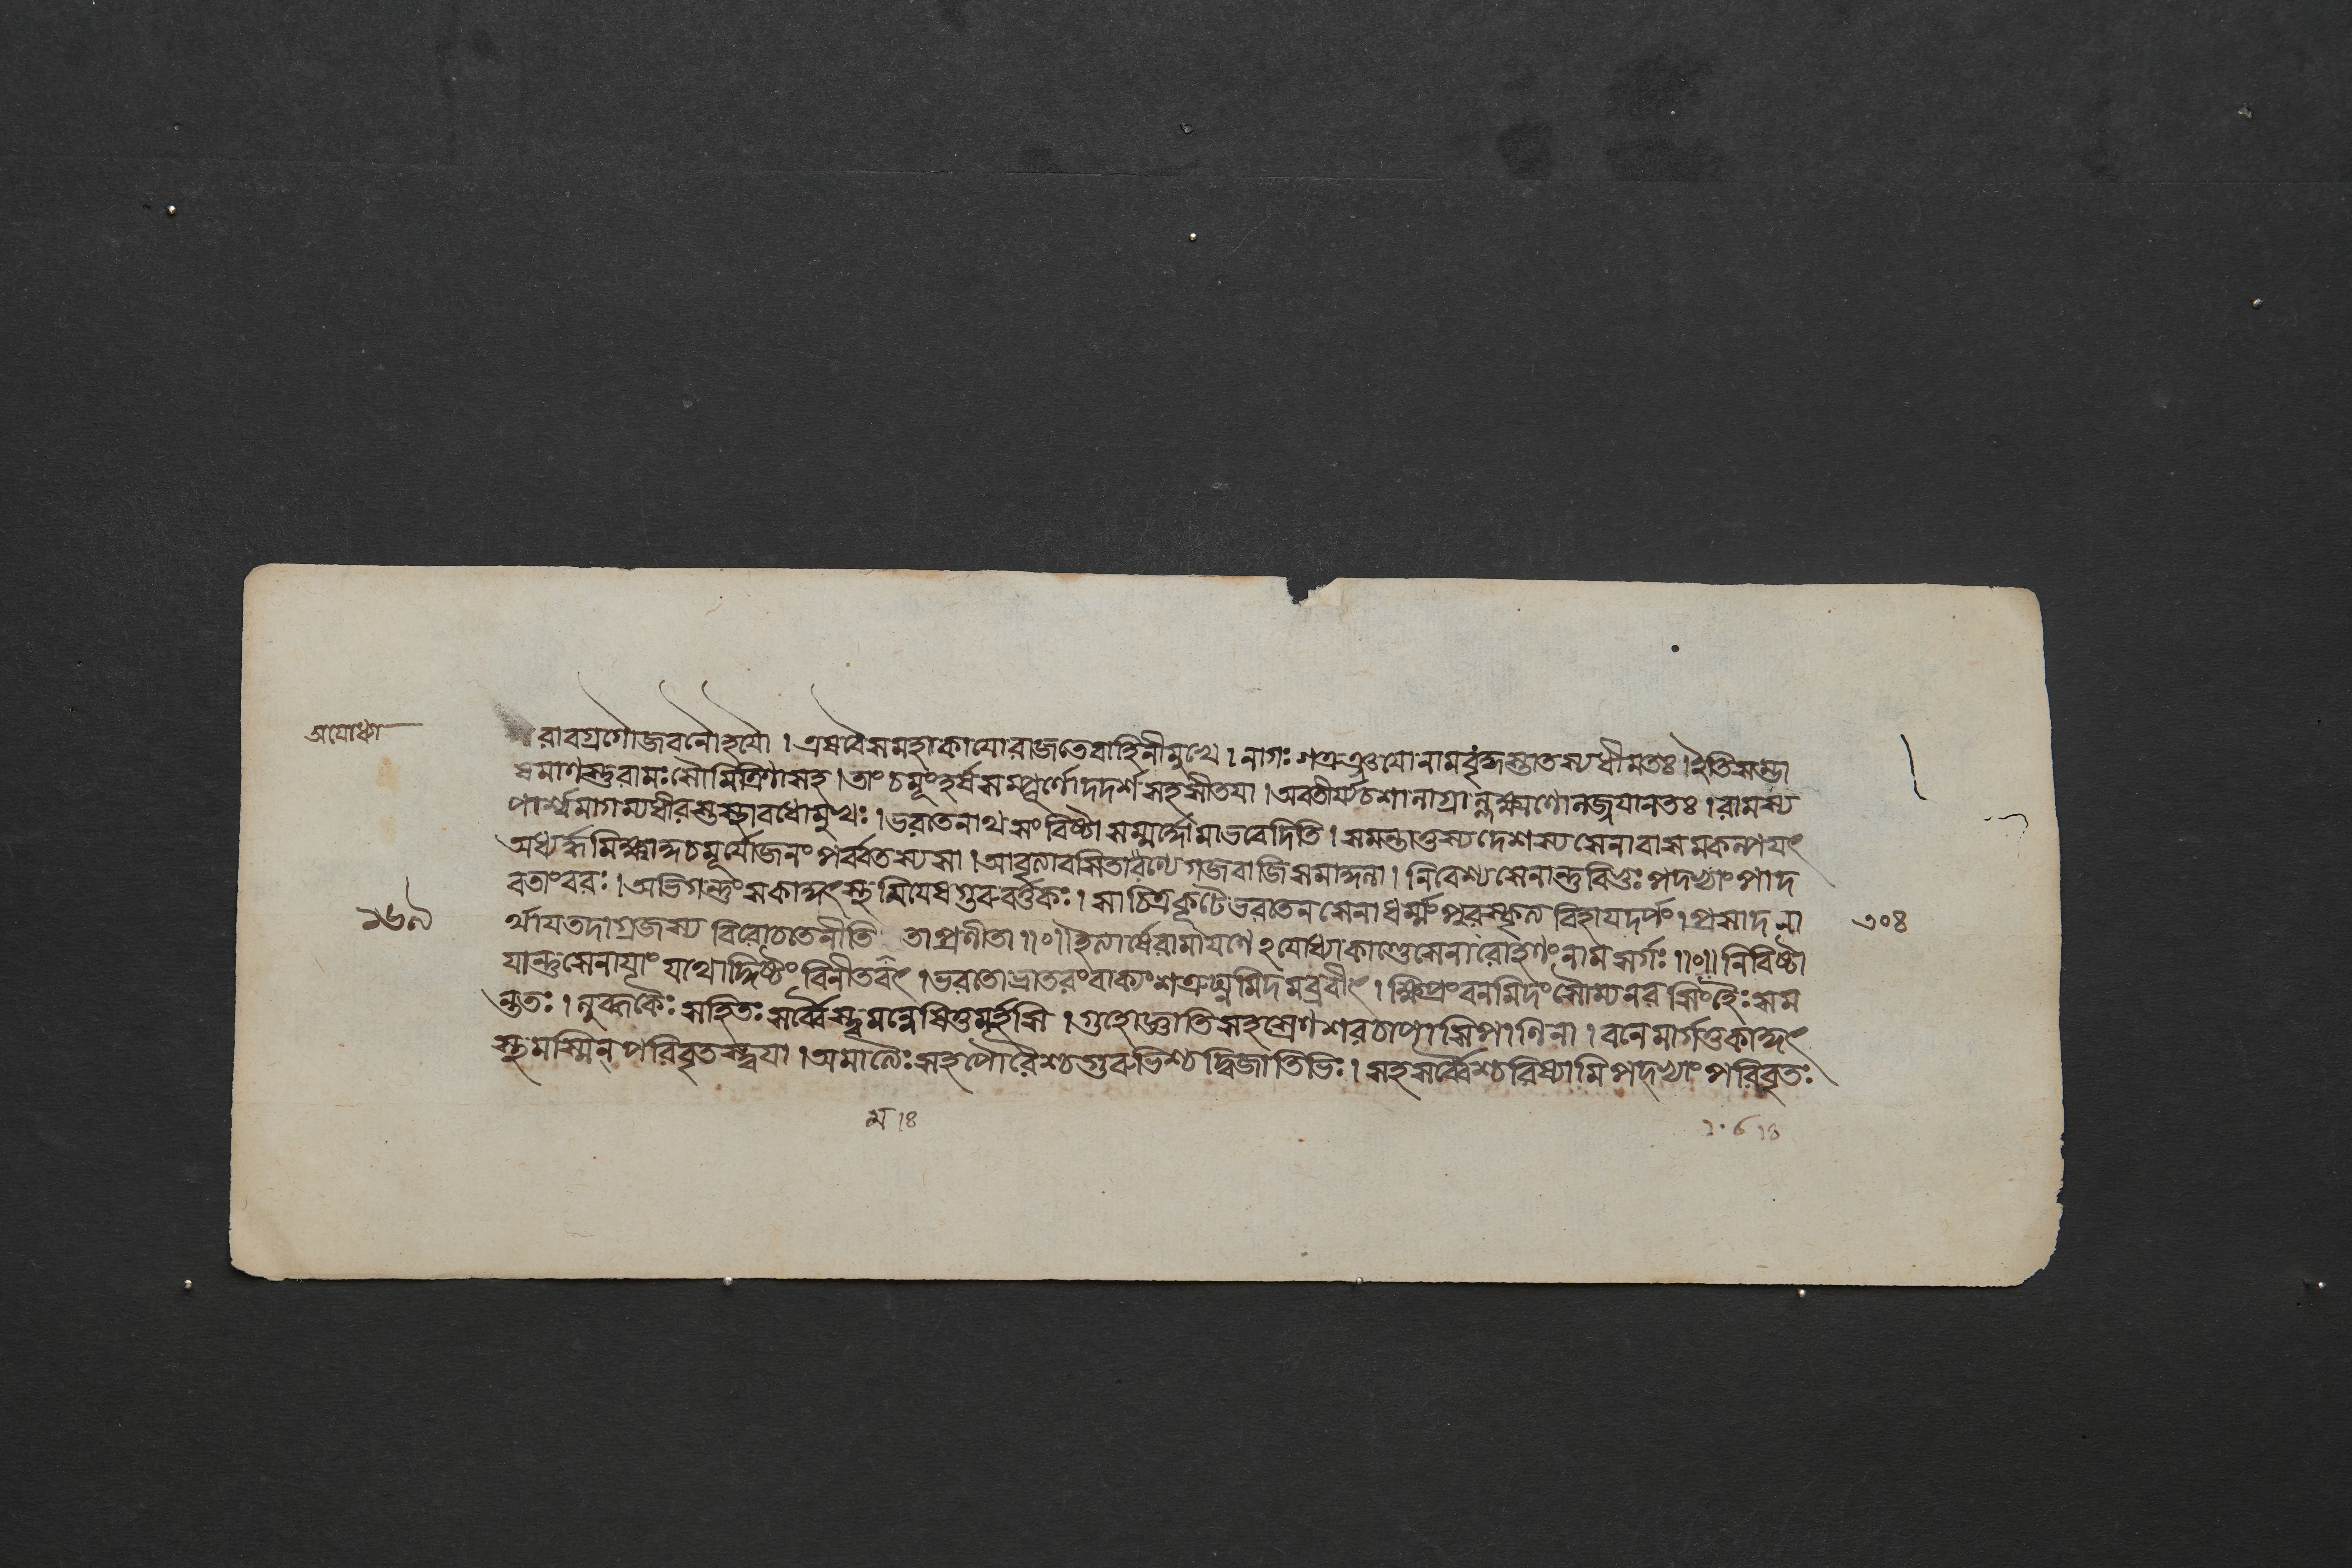 অযোধ্যা
রাবগ্রগৌজবনৌহযৌ । এষবৈসমহাকাযোরাজতেবাহিনীমুখে । নাগঃ শত্রুঞ্জযোনামবৃদ্ধস্তাতস্যধীমতঃ । ইতিসম্ভা
ষমাণস্তুরামঃসৌমিত্রিণাসহ । তাং চমূংহর্ষসম্পূর্ণোদদর্শসহসীতযা । অবতীর্য্যচশালাগ্রাল্লক্ষ্মণোলজ্জযানতঃ । রামস্য
পার্শ্বমাগম্যধীরস্তস্থাবধোমুখঃ । ভরতেনাথসংবিষ্টাসম্মর্দ্দোমাভবেদিতি । সমন্তাত্তস্যদেশস্যসেনাবাসমকল্পযৎ
অধ্যর্দ্ধমিক্ষ্বাকুচমূর্যোজনং পর্ব্বতস্যসা । আবৃত্যাবসিতারণ্যেগজবাজিসমাকুলা । নিবেশ্যসেনান্তুবিভুঃ পদ্ভ্যাং পাদ
বতাংবরঃ । অভিগন্তুংসকাকুৎস্থমিযেষগুরুবর্ত্তকঃ । সাচিত্রকূটেভরতেনসেনাধর্ম্মং পুরস্কৃত্য বিহাযদর্পং । প্রসাদনা
র্থাযতদাগ্রজস্য বিরোচতেনীতি তাপ্রণীতা ॥০॥ ইত্যার্ষেরামাযণে২যোধ্যাকাণ্ডেসেনারোহণংনামসর্গঃ ॥০॥ নিবিষ্টা
যান্তুসেনাযাং যথোদ্দিষ্টং বিনীতবৎ । ভরতোভ্রাতরংবাক্যংশত্রুঘ্নমিদমব্রবীৎ । ক্ষিপ্রংবনমিদংসৌম্যনরসিংহৈঃসম
ন্ততঃ । লুব্ধকৈঃ সহিতঃ সর্ব্বৈস্ত্বমন্বেষিতুমর্হসি । গুহোজ্ঞাতিসহস্রেণশরচাপাসিপাণিনা । বনেমার্গতুকাকুৎ
স্থমস্মিন্ পরিবৃতস্ত্বযা । অমাত্যৈঃসহপৌরৈশ্চগুরুভিশ্চদ্বিজাতিভিঃ । সহসর্ব্বৈশ্চরিষ্যামিপদ্ভ্যাং পরিবৃতঃ
১৬৯
৩০৪
ম ।৪